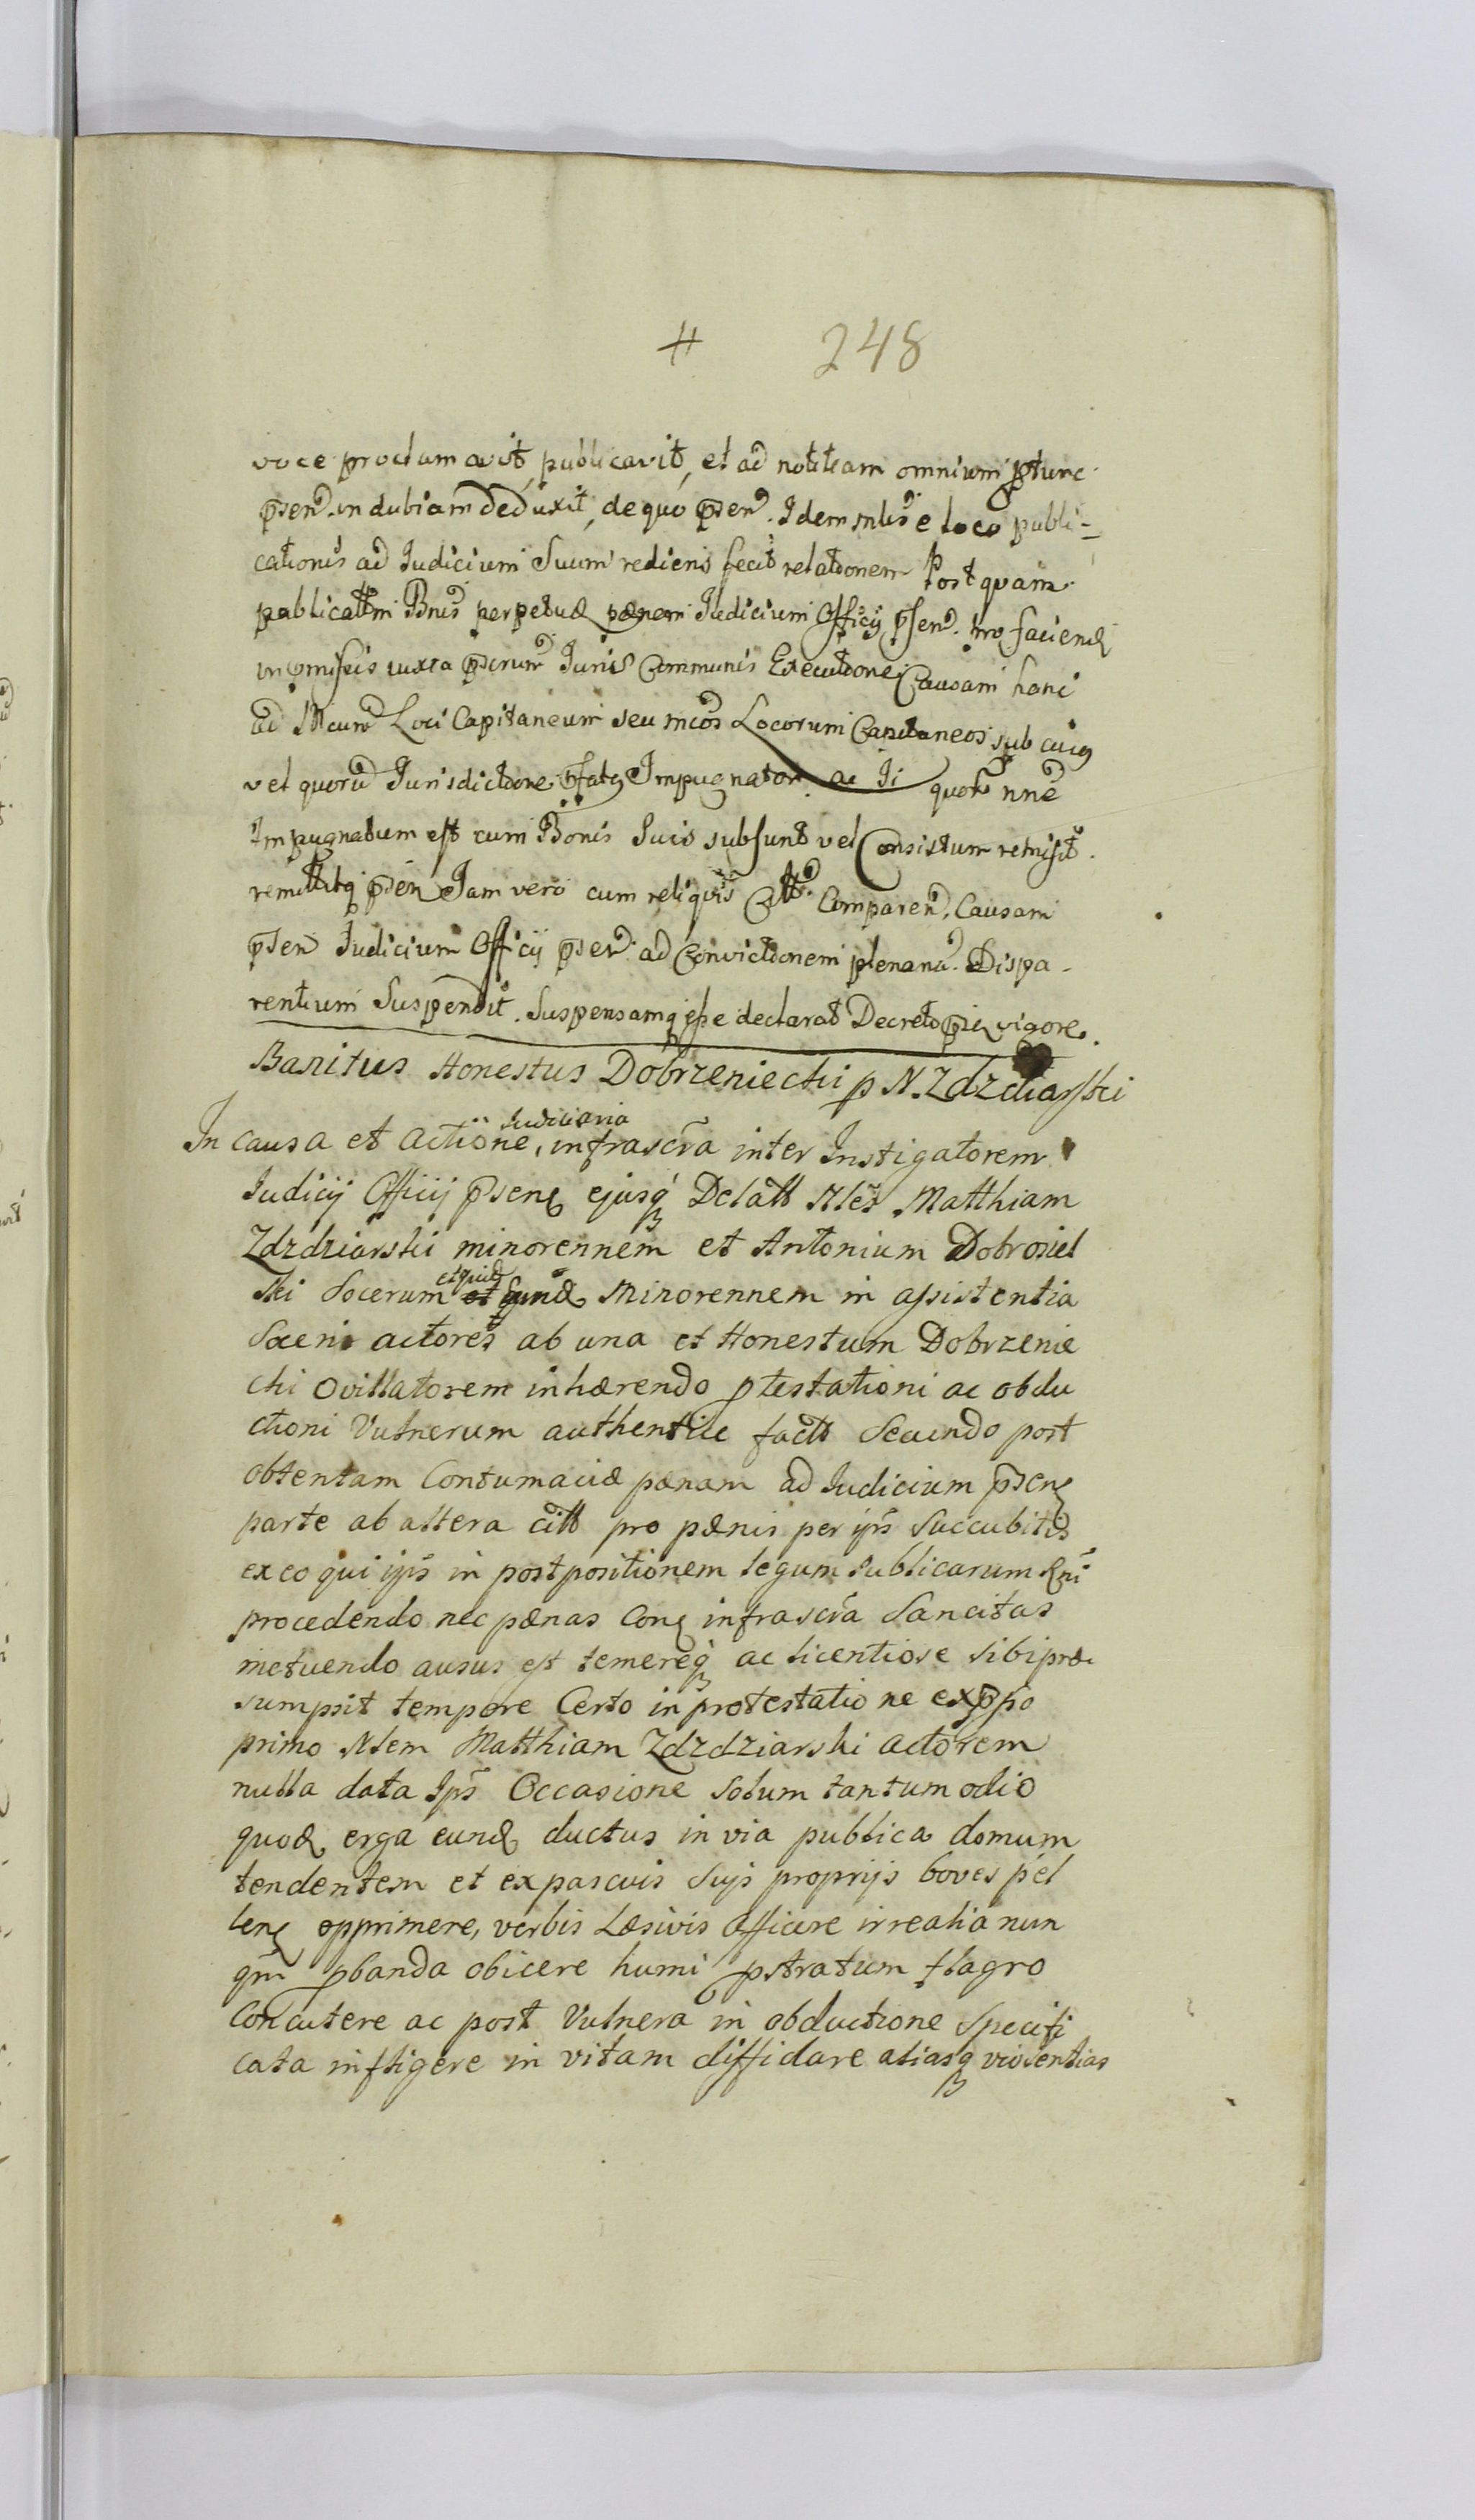 # 248
voce proclamavit, publicavit, et ad notitiam omnium ptunc
psen. indubiam deduxit, de quo psen. Idem mlis e loco publi-
cationis ad Judicium Suum rediens fecit relationem Postquam
publicattm Bnis perpetuæ pænem Judicium Officij psen. pro faciend
in pmissis iuxta pscrum Juris Communis Executione Causam hanc
ad Loci Capitaneum seu Locorum Capitaneos sub cuig
vel quorum Jurisdictione pfatg Impugnator ac Ji quor nne
Impugnatum est cum Bonis Suis subsunt vel Consistum remisit.
remittitq psen Jam vero cum reliquis Comparen, Causam
psen Judicium Officij psen ad Convictionem plenana. Dispa-
rentium Suspendit. Suspensamq esse declarat Decreto psq vigore.
Banitus Honestus Dobrzeniecki p N. Zdzdiarski
Judiciaria
In causa et actione, infrascra inter Instigatorem
Judicij Officij psenę ejusq Delatt Nles Matthiam
Zdzdziarski minorennem et Antonium Dobrosiel
etquid
ski Socerum et eund Minorennem in assistentia
Soceni actores ab una et Honestum Dobrzenie
cki Ovillatorem inhærendo ptestationi ac obdu
ctioni Vulnerum authentice factt Secundo post
obtentam Contumaciæ pænam ad Judicium psenę
parte ab altera citt pro pænis per ips Succubitis
ex eo qui ips in postpositionem legum Publicarum Rni
procedendo nec pænas Conę infrascra Sancitas
metuendo ausus est temereq ac licentiose sibi præ
sumpsit tempore Certo in protestatione expsso
primo Nlem Matthiam Zdzdziarski actorem
nulla data Ips Occasione solum tantum odio
quod erga eund ductus in via publica domum
tendentem et ex pascuis Suis proprijs boves pel
lenę opprimere, verbis Læsivis afficere irrealia nun
qm pbanda obicere humi pstratum flagro
Concutere ac post Vulnera in obductione Specifi
cata infligere in vitam diffidare aliasq violentias